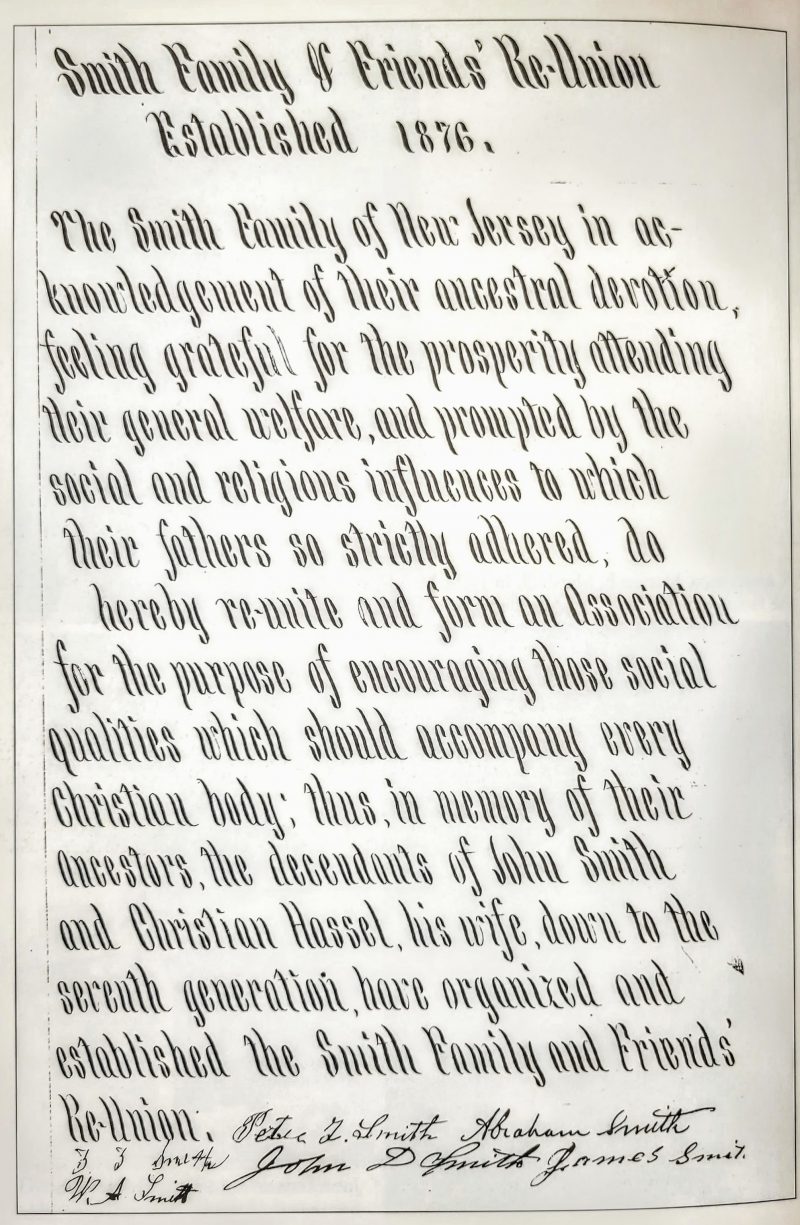 Smith Family & Friends' Re-Union
Established 1876.
The Smith Family of New Jersey in ac-
knowledgement of their ancestral devotion,
feeling grateful for the prosperity attending
their general welfare, and prompted by the
social and religious influences to which
their fathers so strictly adhered, do
hereby re-unite and form an Association
for the purpose of encouraging those social
qualities which should accompany every
Christian body; thus, in memory of their
ancestors, the decendants of John Smith
and Christian Hassel, his wife, down to the
seventh generation, have organized and
established the Smith Family and Friends'
Re-Union. Peter Z. Smith Abraham Smith
Smith John D Smith James Smit.
W. A Smith